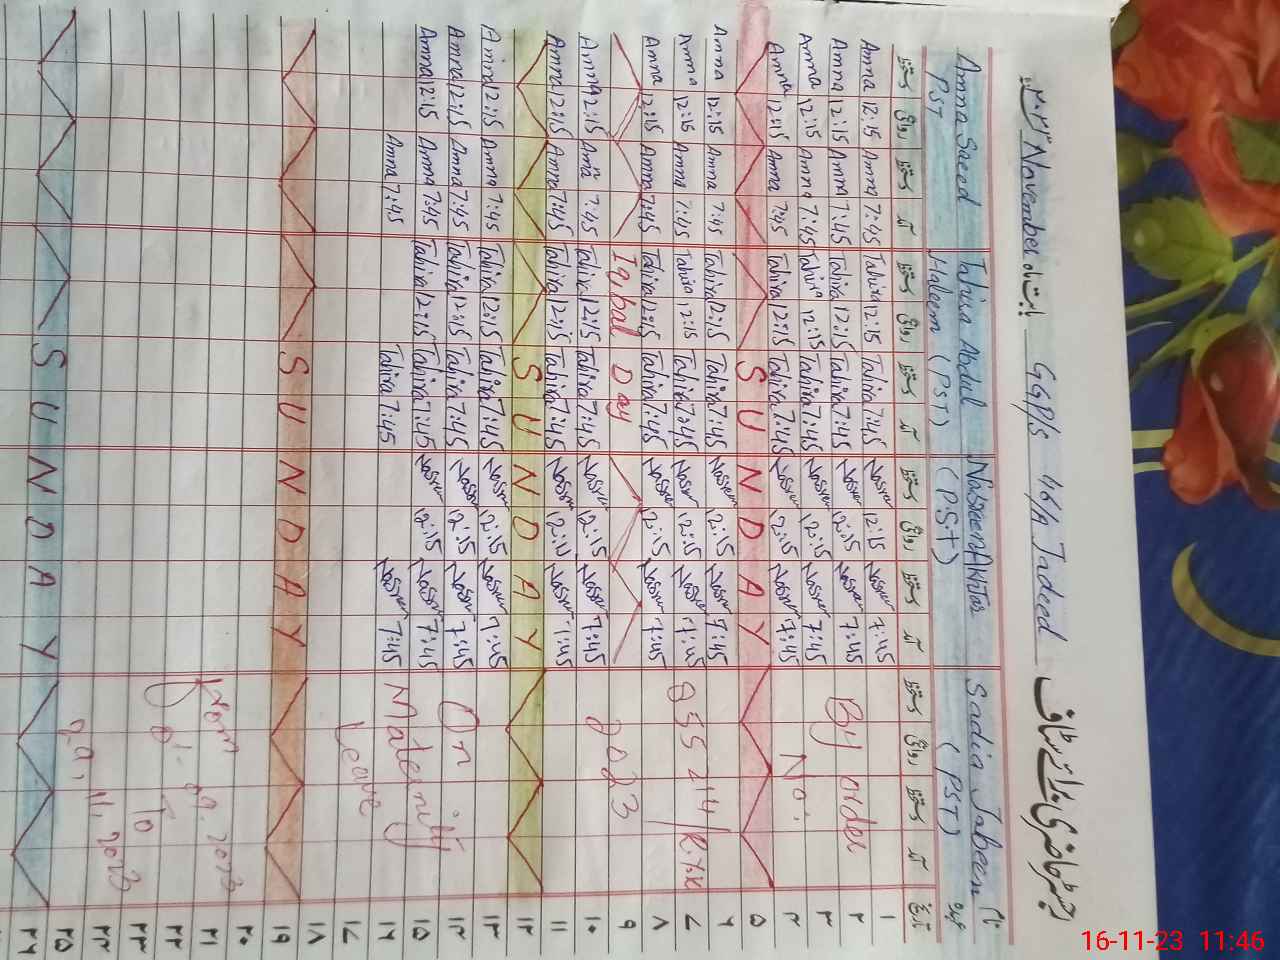 رجسٹر حاضری برائے سٹاف GGP/S 46/A Jadeed بابت ماہ November ۲۰۲۳
نام Sadia Jabeen Nasreen Akhtar Tahira Abdul Amna Saeed
عہدہ (PST) (P.S.T) Haleem (PST) PST
تاریخ آمد دستخط روانگی دستخط آمد دستخط روانگی دستخط آمد دستخط روانگی دستخط آمد دستخط روانگی دستخط
۱ 7:45 Nasreen 12:15 Nasreen 7:45 Tahira 12:15 Tahira 7:45 Amna 12:15 Amna
۲ By order 7:45 Nasreen 12:15 Nasreen 7:45 Tahira 12:15 Tahira 7:45 Amna 12:15 Amna
۳ No: 7:45 Nasreen 12:15 Nasreen 7:45 Tahira 12:15 Tahira 7:45 Amna 12:15 Amna
۴ 7:45 Nasreen 12:15 Nasreen 7:45 Tahira 12:15 Tahira 7:45 Amna 12:15 Amna
۵ SUNDAY
۶ 7:45 Nasreen 12:15 Nasreen 7:45 Tahira 12:15 Tahira 7:45 Amna 12:15 Amna
۷ 7:45 Nasreen 12:15 Nasreen 7:45 Tahira 12:15 Tahira 7:45 Amna 12:15 Amna
۸ 7:45 Nasreen 12:15 Nasreen 7:45 Tahira 12:15 Tahira 7:45 Amna 12:15 Amna
۹ 2023 Iqbal Day
۱۰ 7:45 Nasreen 12:15 Nasreen 7:45 Tahira 12:15 Tahira 7:45 Amna 12:15 Amna
۱۱ Nasreen Nasreen 7:45 Tahira 12:15 Tahira 7:45 Amna 12:15 Amna
۱۲ SUNDAY
۱۳ 7:45 Nasreen 12:15 Nasreen 7:45 Tahira 12:15 Tahira 7:45 Amna 12:15 Amna
۱۴ On 7:45 Nasreen 12:15 Nasreen 7:45 Tahira 12:15 Tahira 7:45 Amna 12:15 Amna
۱۵ Maternity 7:45 Nasreen 12:15 Nasreen 7:45 Tahira 12:15 Tahira 7:45 Amna 12:15 Amna
۱۶ 7:45 Nasreen 7:45 Tahira 7:45 Amna
۱۷ Leave
۱۸
۱۹ SUNDAY
۲۰
۲۱ From
۲۲ To
۲۳
۲۴ 11, 2023
۲۵
۲۶ SUNDAY
16-11-23 11:46